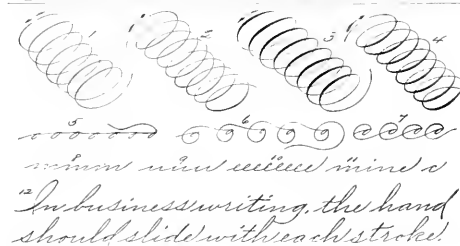 1 2 3 4
5 6 7
mmm uuu eeeeeee mine c
12 In business writing, the hand
should slide with each stroke.